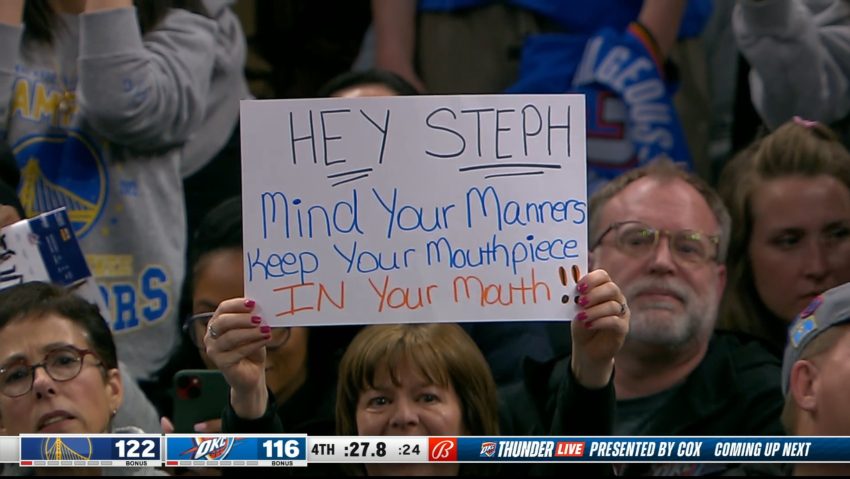 HEY STEPH
Mind Your Manners
Keep Your Mouthpiece
IN Your Mouth!!
122
BONUS
OKC
116
BONUS
4TH :27.8 :24
B
THUNDER LIVE PRESENTED BY COX COMING UP NEXT